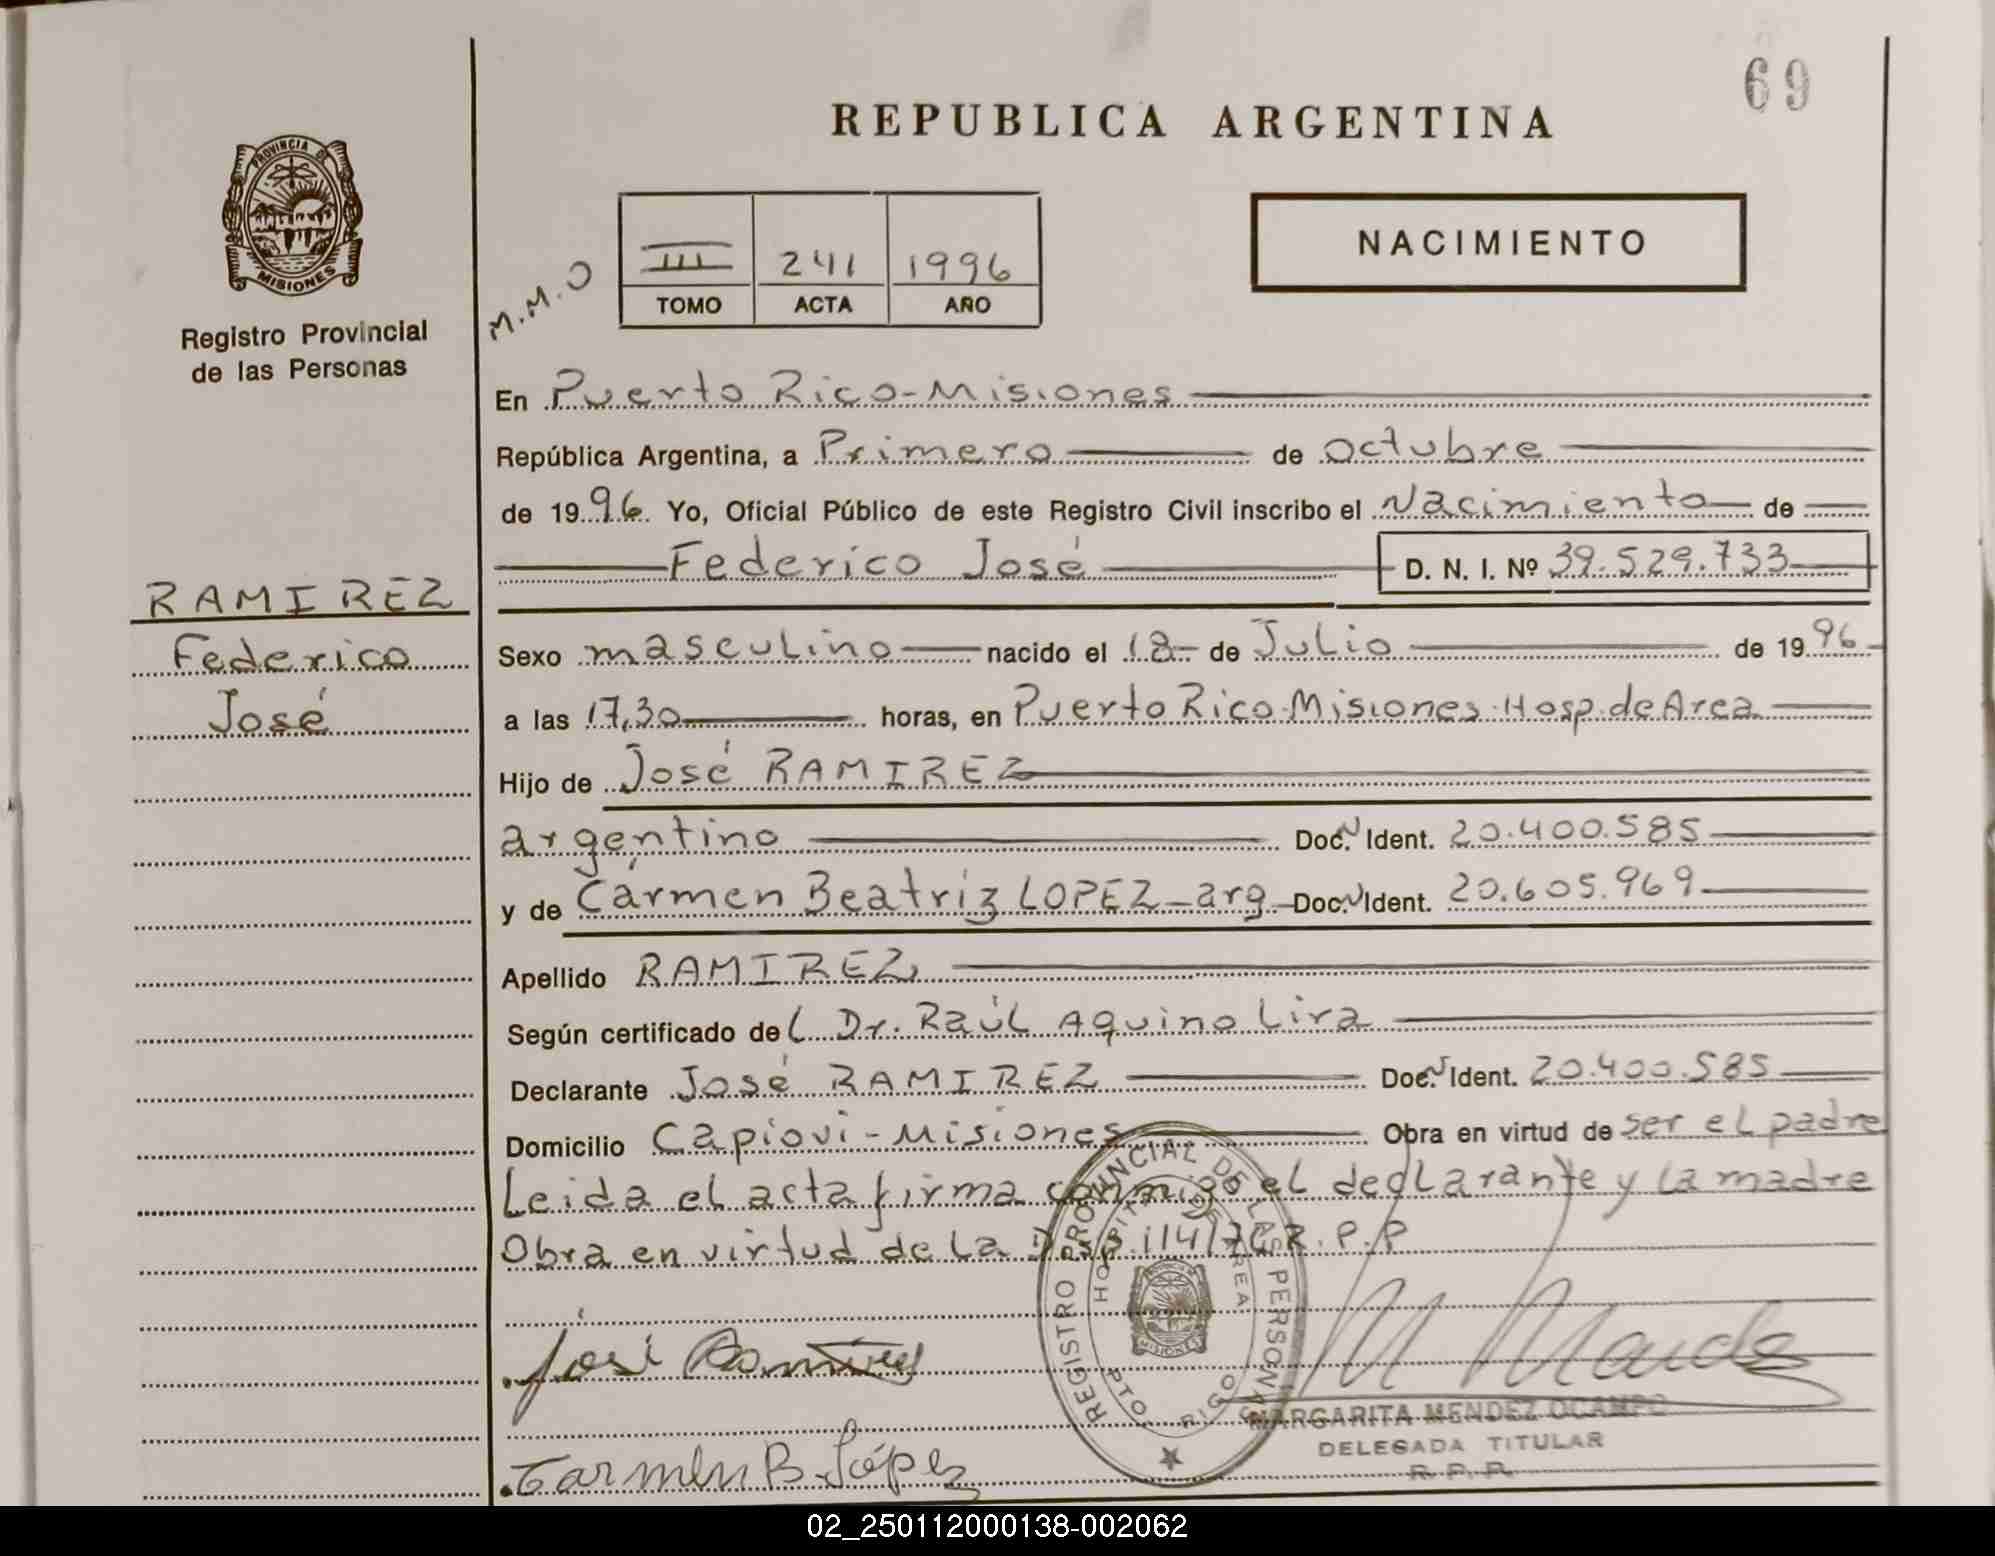 69
REPUBLICA ARGENTINA
PROVINCIA DE
MISIONES
Registro Provincial
de las Personas
M.M.O
III 241 1996
TOMO ACTA AÑO
NACIMIENTO
En Puerto Rico-Misiones
República Argentina, a Primero de octubre
de 1996 Yo, Oficial Público de este Registro Civil inscribo el Nacimiento de
Federico José D. N. I. Nº 39.529.733
RAMIREZ
Federico
José
Sexo masculino nacido el 18 de Julio de 1996
a las 17,30 horas, en Puerto Rico-Misiones-Hosp. de Area
Hijo de José RAMIREZ
argentino Doc. N Ident. 20.400.585
y de Carmen Beatriz LOPEZ-arg Doc. N Ident. 20.605.969
Apellido RAMIREZ
Según certificado del Dr. Raúl Aquino Lira
Declarante José RAMIREZ Doc. N Ident. 20.400.585
Domicilio Capiovi-Misiones Obra en virtud de ser el padre
Leida el acta firma conmigo el declarante y la madre
Obra en virtud de la Disp. 114/ R.P.P
REGISTRO PROVINCIAL DE LAS PERSONAS
HOSPITAL DE AREA
PTO. RICO
MISIONES
José Ramirez
MARGARITA MENDEZ OCAMPO
DELEGADA TITULAR
R. P. P.
Carmen B. López
02_250112000138-002062